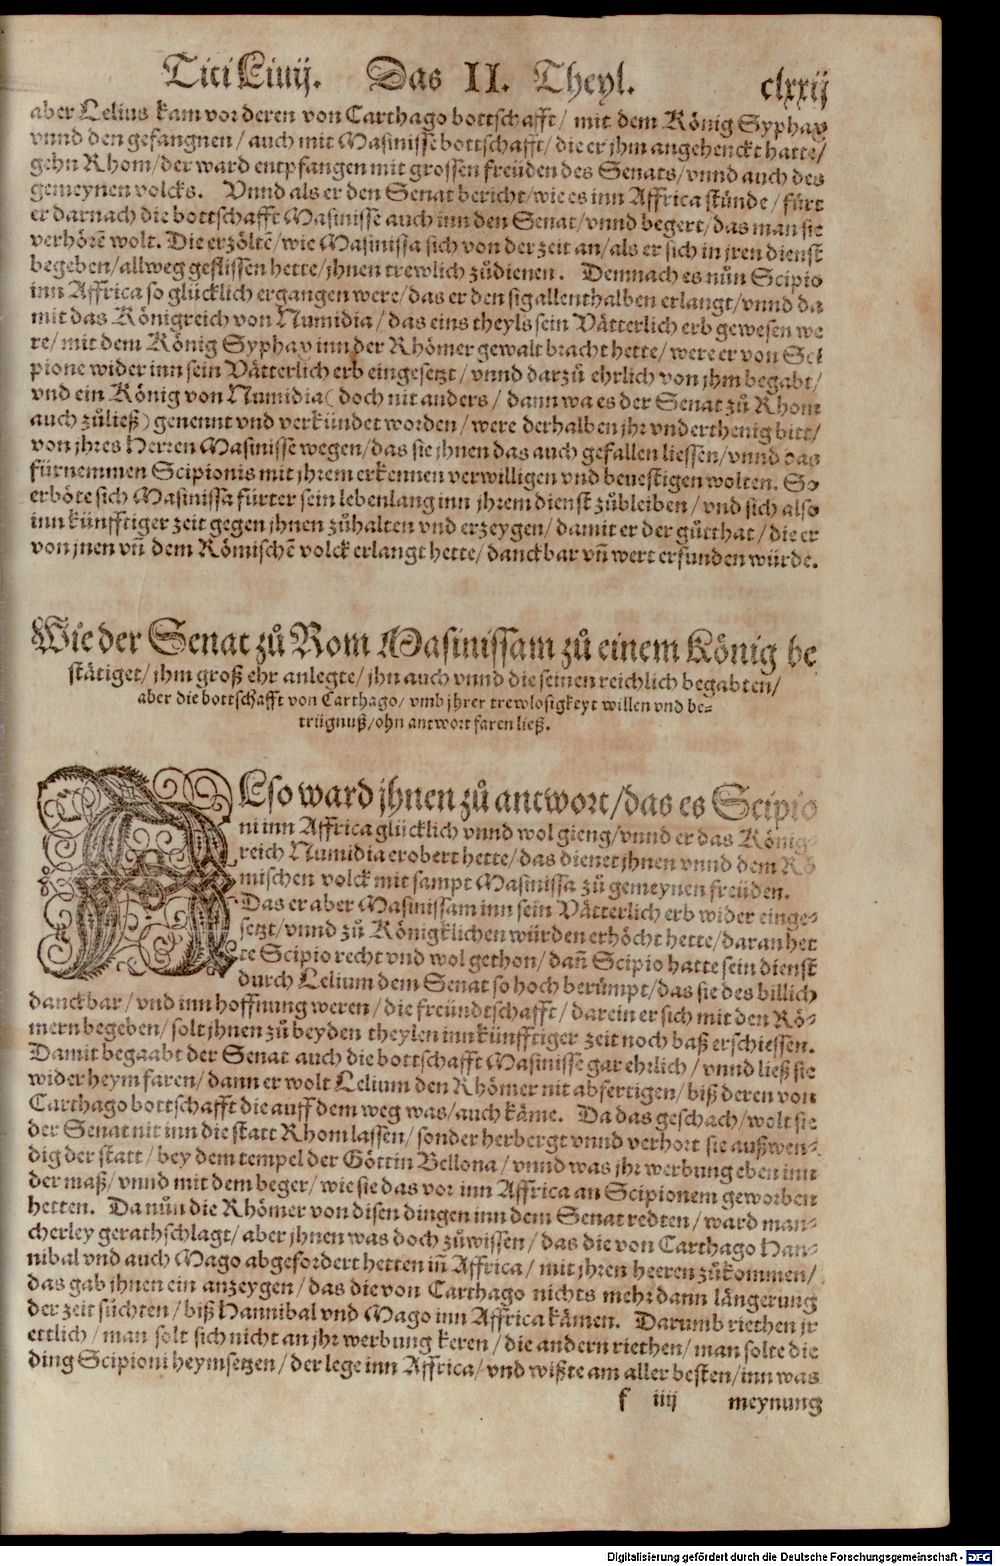 Titi Liuij. Das II. Theyl. clxxij
aber Lelius kam vor deren von Carthago bottschafft / mit dem König Syphax
vnnd den gefangnen / auch mit Masinisse bottschafft / die er jhm angehenckt hatte /
gehn Rhom / der ward entpfangen mit grossen freüden des Senats / vnnd auch des
gemeynen volcks. Vnnd als er den Senat bericht / wie es inn Affrica stünde / fürt
er darnach die bottschafft Masinisse auch inn den Senat / vnnd begert / das man sie
verhörē wolt. Die erzöltē / wie Masinissa sich von der zeit an / als er sich in jren dienst
begeben / allweg geflissen hette / jhnen trewlich zůdienen. Demnach es nůn Scipio
inn Affrica so glücklich ergangen were / das er den sig allenthalben erlangt / vnnd da
mit das Königreich von Numidia / das eins theyls sein Vätterlich erb gewesen we
re / mit dem König Syphax inn der Rhömer gewalt bracht hette / were er von Sci
pione wider inn sein Vätterlich erb eingesetzt / vnnd darzů ehrlich von jhm begabt /
vnd ein König von Numidia ( doch nit anders / dann wa es der Senat zů Rhom
auch zůließ ) genennt vnd verkündet worden / were derhalben jhr vnderthenig bitt /
von jhres Herren Masinisse wegen / das sie jhnen das auch gefallen liessen / vnnd das
fürnemmen Scipionis mit jhrem erkennen verwilligen vnd beuestigen wolten. So
erböte sich Masinissa fürter sein lebenlang inn jhrem dienst zůbleiben / vnd sich also
inn künfftiger zeit gegen jhnen zůhalten vnd erzeygen / damit er der gůtthat / die er
von jnen vñ dem Römischē volck erlangt hette / danckbar vñ wert erfunden würde.
Wie der Senat zů Rom Masinissam zů einem König be
stätiget / jhm groß ehr anlegte / jhn auch vnnd die seinen reichlich begabten /
aber die bottschafft von Carthago / vmb jhrer trewlosigkeyt willen vnd be-
trügnuß / ohn antwort faren ließ.
ALso ward jhnen zů antwort / das es Scipio
ni inn Affrica glücklich vnnd wol gieng / vnnd er das König-
reich Numidia erobert hette / das dienet jhnen vnnd dem Rö
mischen volck mit sampt Masinissa zů gemeynen freüden.
Das er aber Masinissam inn sein Vätterlich erb wider einge-
setzt / vnnd zů Königklichen würden erhöcht hette / daran het
te Scipio recht vnd wol gethon / dañ Scipio hatte sein dienst
durch Lelium dem Senat so hoch berůmpt / das sie des billich
danckbar / vnd inn hoffnung weren / die freündtschafft / darein er sich mit den Rö-
mern begeben / solt jhnen zů beyden theylen inn künfftiger zeit noch baß erschiessen.
Damit begaabt der Senat auch die bottschafft Masinisse gar ehrlich / vnnd ließ sie
wider heym faren / dann er wolt Lelium den Rhömer nit abfertigen / biß deren von
Carthago bottschafft die auff dem weg was / auch käme. Da das geschach / wolt sie
der Senat nit inn die statt Rhom lassen / sonder herbergt vnnd verhort sie außwen-
dig der statt / bey dem tempel der Göttin Bellona / vnnd was jhr werbung eben inn
der maß / vnnd mit dem beger / wie sie das vor inn Affrica an Scipionem geworben
hetten. Da nůn die Rhömer von disen dingen inn dem Senat redten / ward man-
cherley gerathschlagt / aber jhnen was doch zůwissen / das die von Carthago Han-
nibal vnd auch Mago abgefordert hetten iñ Affrica / mit jhren heeren zůkommen /
das gab jhnen ein anzeygen / das die von Carthago nichts mehr dann längerung
der zeit sůchten / biß Hannibal vnd Mago inn Affrica kämen. Darumb riethen jr
ettlich / man solt sich nicht an jhr werbung keren / die andern riethen / man solte die
ding Scipioni heymsetzen / der lege inn Affrica / vnd wißte am aller besten / inn was
f iiij meynung
Digitalisierung gefördert durch die Deutsche Forschungsgemeinschaft - DFG